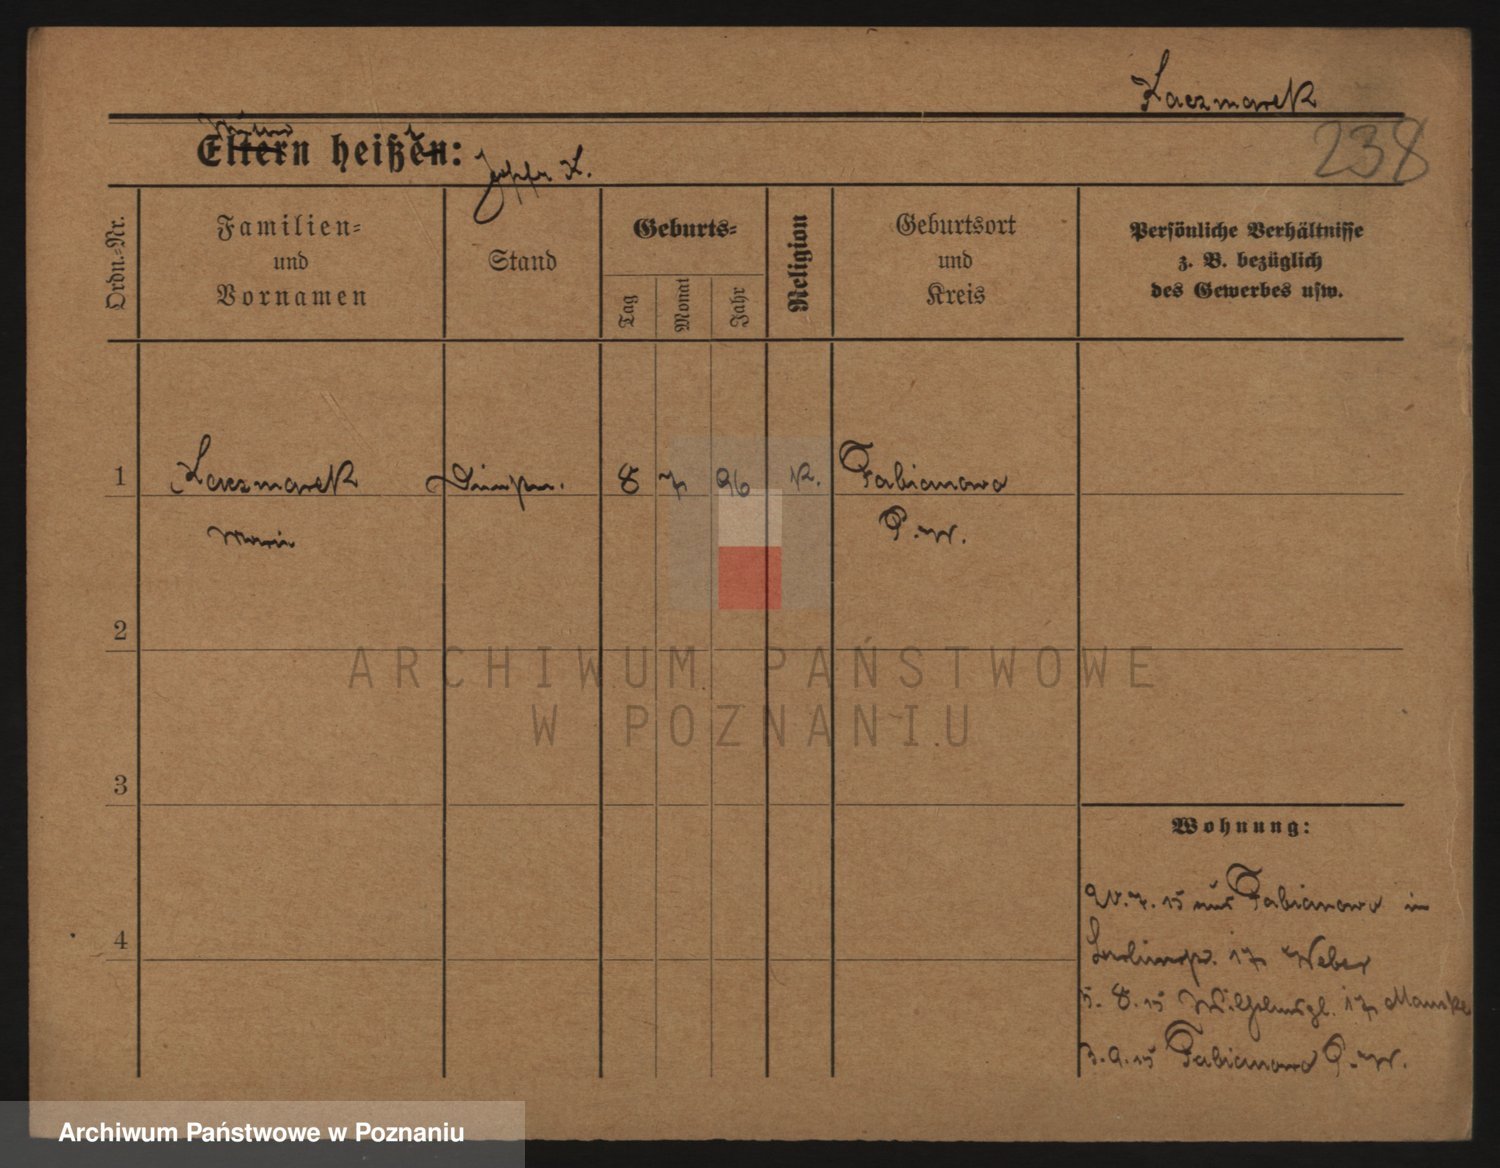 Kaczmarek
238
Eltern heißen:
K.
Ordn.-Nr.
Familien-
und
Vornamen
Stand
Geburts-
Tag
Monat
Jahr
Religion
Geburtsort
und
Kreis
Persönliche Verhältnisse
z. B. bezüglich
des Gewerbes usw.
1
Kaczmarek
8
7
96
K.
Fabianowo
Marie
P. W.
2
ARCHIWUM PAŃSTWOWE
W POZNANIU
3
Wohnung:
20.7.15 aus Fabianowo in
4
17 Weber
5. 8. 15 Wilhelmspl. 17
3.9.15 Fabianowo P. W.
Archiwum Państwowe w Poznaniu